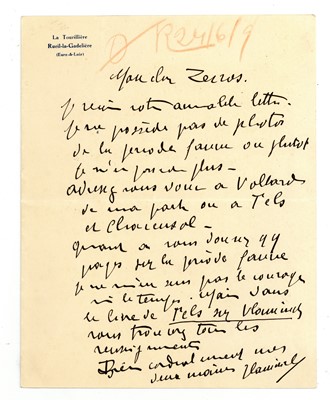 La Tourillière
Rueil-la-Gadelière
(Eure-&-Loir)
Mon cher Zervos.
je reçois votre aimable lettre.
je ne possède pas de photos
de la période fauve ou plutôt
je n'en possède plus -
adressez vous donc à Vollard
de ma part ou à Tels
et Chacunsol -
quant à vous donner qq
pages sur la période fauve
je ne me sens pas le courage
ni le temps. Mais dans
le livre de Fels sur Vlaminck
vous trouverez tous les
renseignements
Bien cordialement mes
deux mains Vlaminck